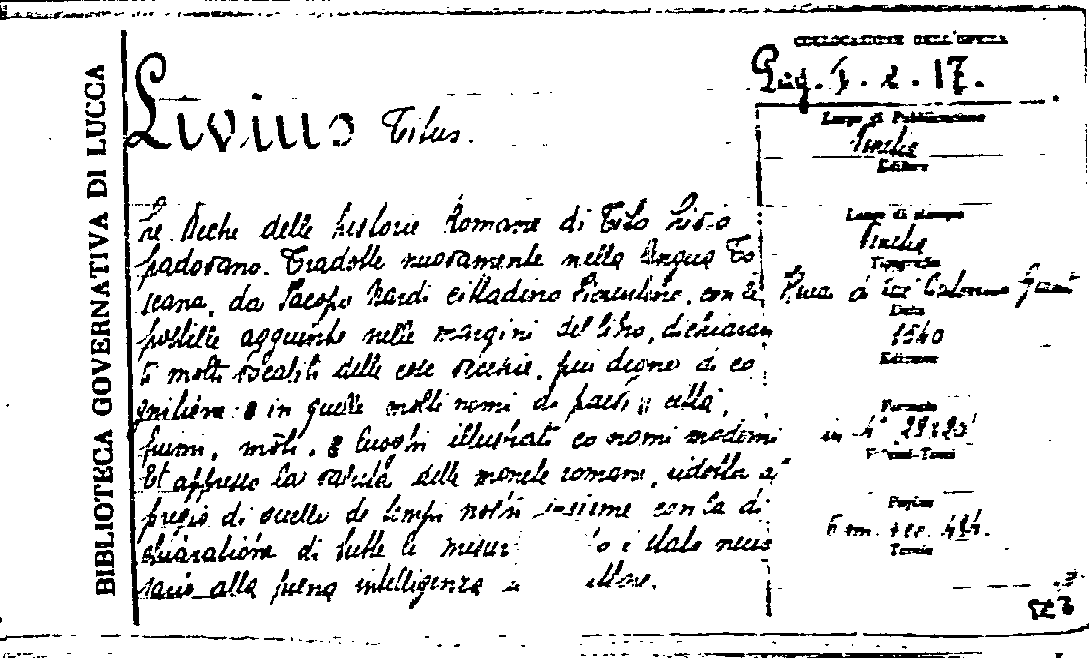 BIBLIOTECA GOVERNATIVA DI LUCCA
COLLOCAZIONE DELL'OPERA
Livius Titus.
Le Deche delle historie Romane di Tito Livio
padovano. Tradotte nuovamente nella lingua To
scana, da Jacopo Nardi cittadino Fiorentino, con le
postille aggiunte nelle margini del libro, dichiaran
ti molti vocaboli delle cose vecchie, piu degne di co
gnitione: e in quelle molti nomi di paesi, città,
fiumi, moti, e luoghi illustrati co nomi moderni
Et appresso la valuta delle monete romane, ridotta al
pregio di quelle de tempi nostri insieme con la di
chiaratione di tutte le misur to è stato neces
sario alla piena intelligenza
Luogo di Pubblicazione
Venetia
Editore
Luogo di stampa
Venetia
Tipografia
Data
1540
Edizione
Formato
in 4°
Volumi-Tomi
Pagine
6 nn. + cc. 424.
Tavole